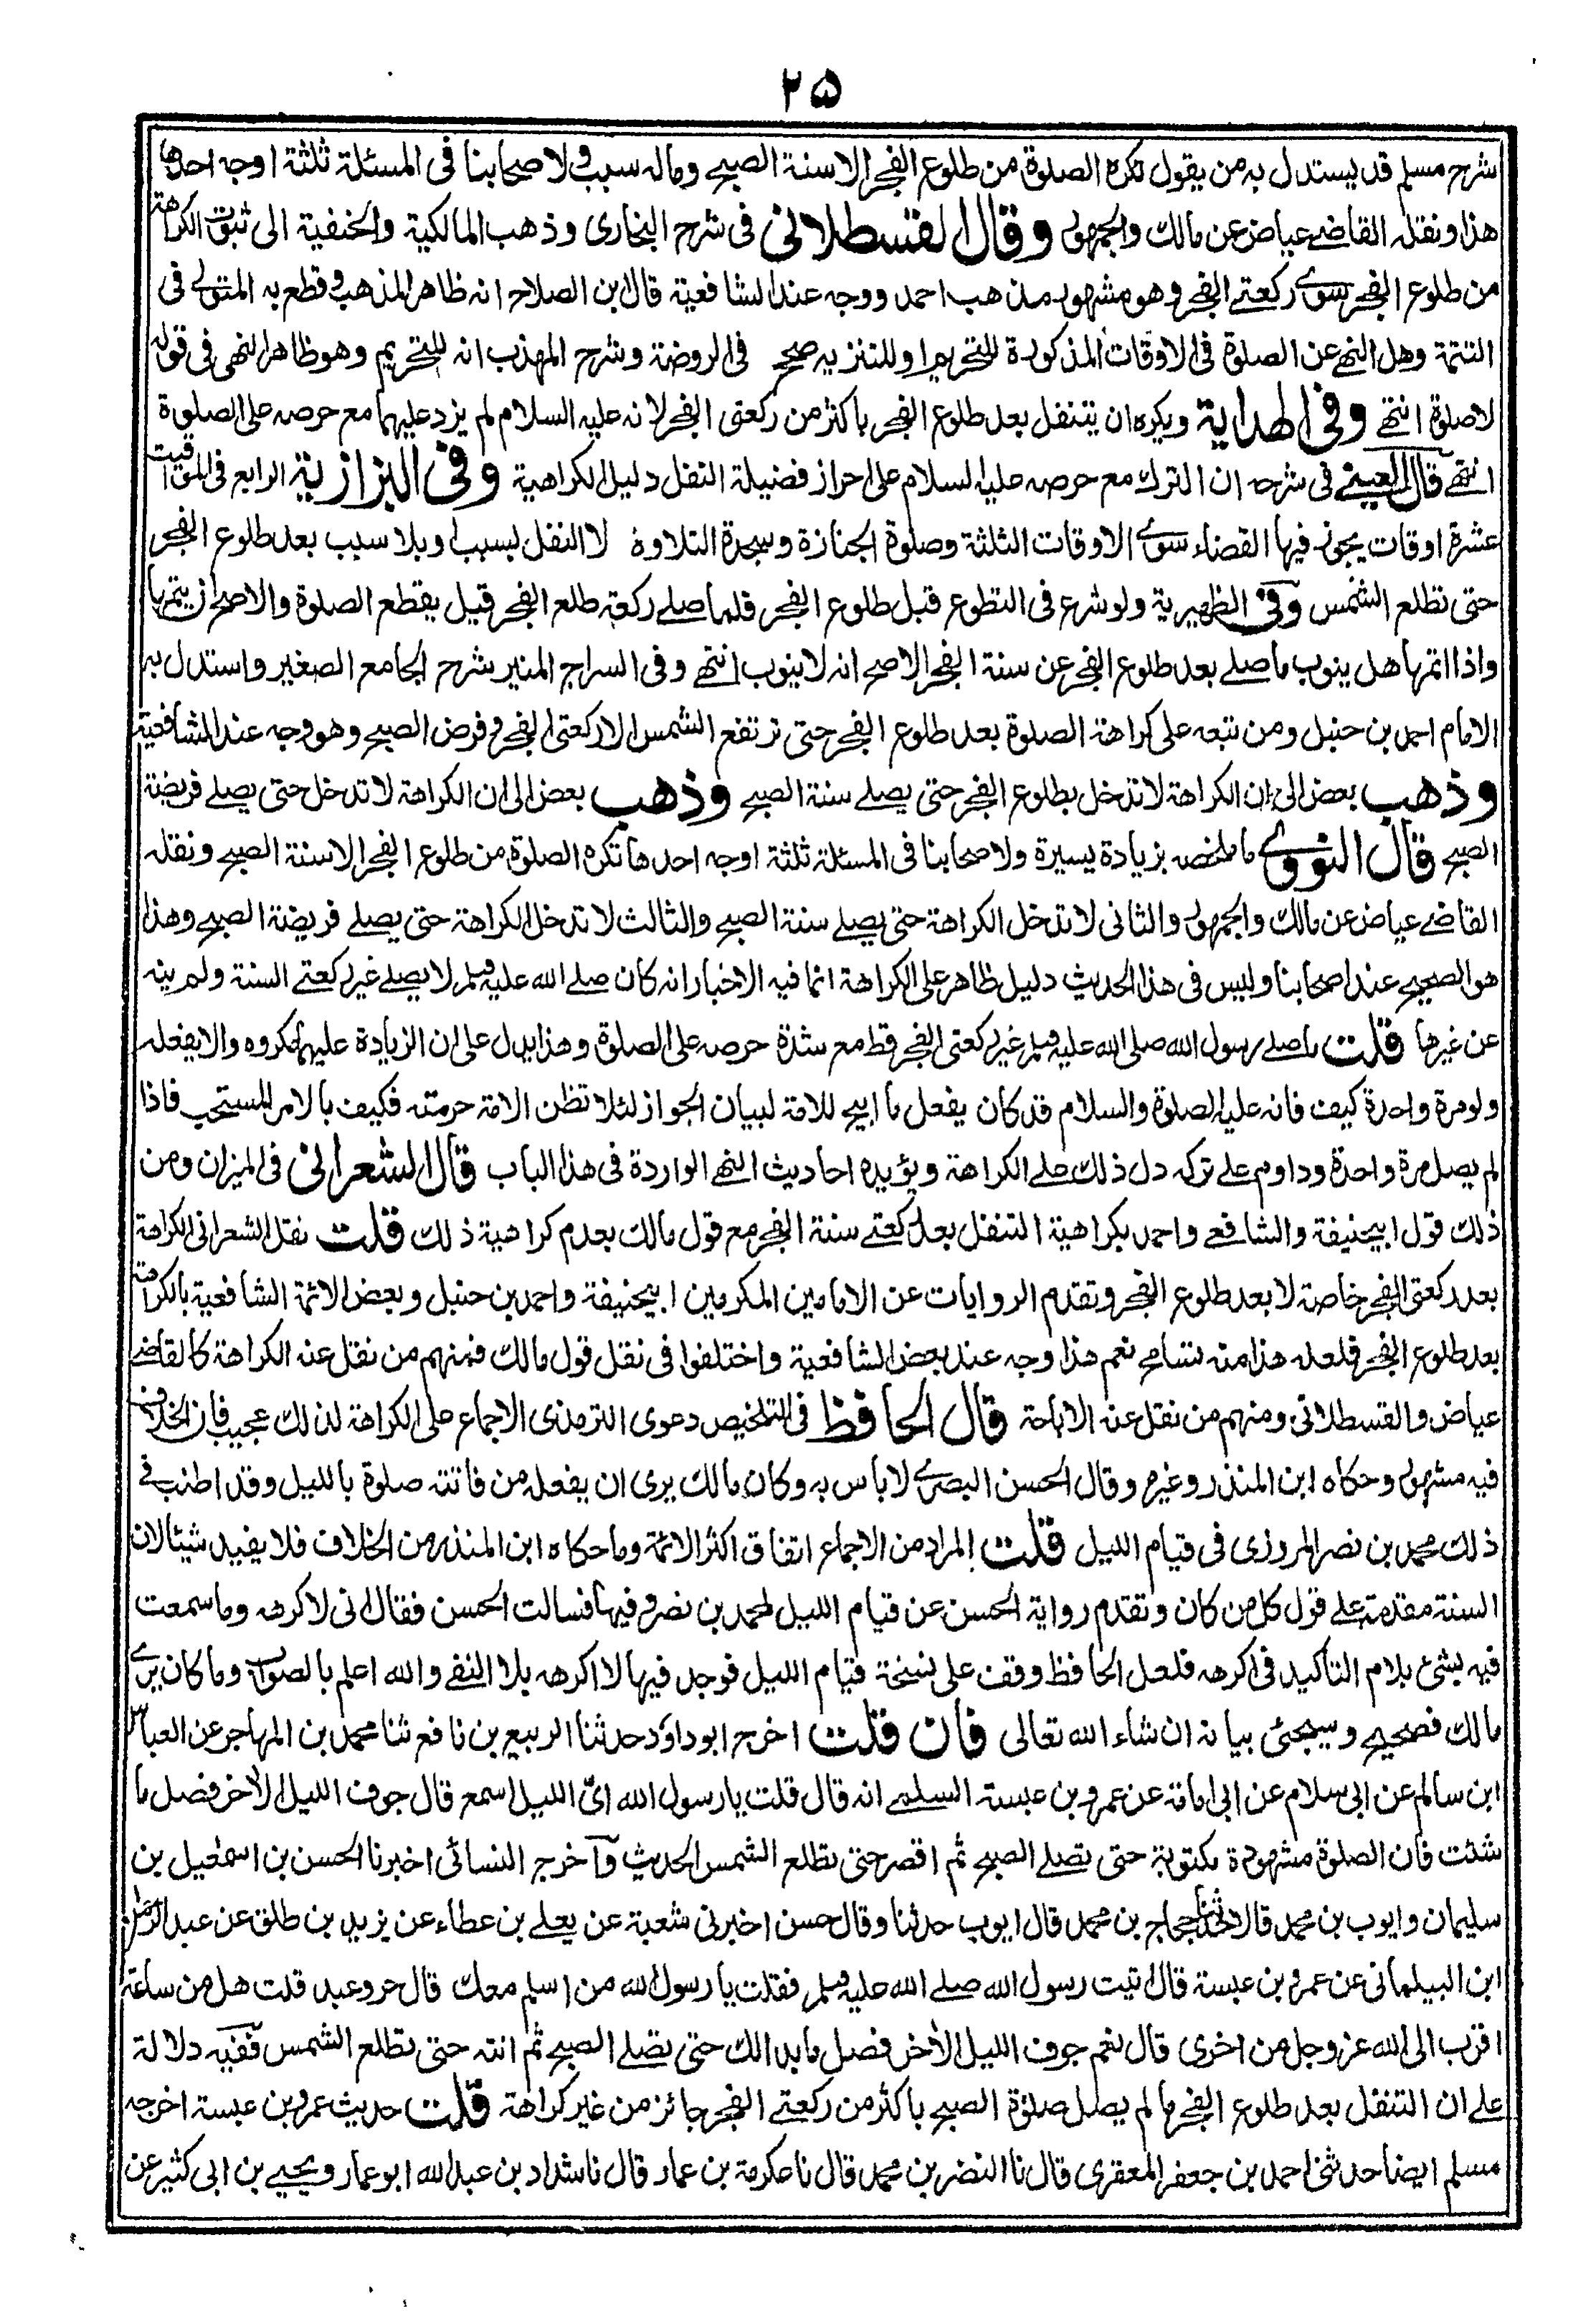 ٢٥
شرح مسلم قد يستدل به من يقول تكره الصلوة من طلوع الفجر الا سنة الصبح وماله سبب ولاصحابنا فى المسئلة ثلثة اوجه احدها
هذا ونقله القاضے عياض عن مالك والجمهور وقال القسطلانى فى شرح البخارى وذهب المالكية والحنفية الى ثبوت الكراهة
من طلوع الفجر سوے ركعتے الفجر وهو مشهور مذهب احمد ووجه عند الشافعية قال ابن الصلاح انه ظاهر المذهب وقطع به المتولے فى
التتمة وهل النهے عن الصلوة فى الاوقات المذكورة للتحريم او للتنزيه صحح فى الروضة وشرح المهذب انه للتحريم وهو ظاهر النهى فى قوله
لا صلوة انتهے وفى الهداية ويكره ان يتنفل بعد طلوع الفجر باكثر من ركعتى الفجر لانه عليه السلام لم يزد عليهما مع حرصه على الصلوة
انتهے قال العينے فى شرحه ان الترك مع حرصه عليه السلام على احراز فضيلة النفل دليل الكراهية وفى البزازية الرابع فى المواقيت
عشرة اوقات يجوز فيها القضاء سوے الاوقات الثلثة وصلوة الجنازة وسجدة التلاوة لا النفل بسبب او بلا سبب بعد طلوع الفجر
حتى تطلع الشمس وفى الظهيرية ولو شرع فى التطوع قبل طلوع الفجر فلما صلے ركعة طلع الفجر قيل يقطع الصلوة والاصح ان يتمها
واذا اتمها هل ينوب ما صلے بعد طلوع الفجر عن سنة الفجر الاصح انه لا ينوب انتهے وفى السراج المنير شرح الجامع الصغير واستدل به
الامام احمد بن حنبل ومن تبعه على كراهة الصلوة بعد طلوع الفجر حتى ترتفع الشمس الا ركعتى الفجر وفرض الصبح وهو وجه عند الشافعية
وذهب بعض الى ان الكراهة لا تدخل بطلوع الفجر حتى يصلے سنة الصبح وذهب بعض الى ان الكراهة لا تدخل حتى يصلے فريضة
الصبح قال النووے ما ملخصه بزيادة يسيرة ولاصحابنا فى المسئلة ثلثة اوجه احدها تكره الصلوة من طلوع الفجر الا سنة الصبح ونقله
القاضے عياض عن مالك والجمهور والثانى لا تدخل الكراهة حتى يصلے سنة الصبح والثالث لا تدخل الكراهة حتى يصلے فريضة الصبح وهذا
هو الصحيح عند اصحابنا وليس فى هذا الحديث دليل ظاهر على الكراهة انما فيه الاخبار انه كان صلے الله عليه وسلم لا يصلے غير ركعتے السنة ولم ينه
عن غيرها قلت ما صلے رسول الله صلى الله عليه وسلم غير ركعتى الفجر قط مع شدة حرصه على الصلوة وهذا يدل على ان الزيادة عليهما مكروه والا يفعله
ولو مرة واحدة كيف فانه عليه الصلوة والسلام قد كان يفعل ما ابيح للامة لبيان الجواز لئلا تظن الامة حرمته فكيف بالامر المستحب فاذا
لم يصل مرة واحدة وداوم علے تركه دل ذلك علے الكراهة ويؤيده احاديث النهے الواردة فى هذا الباب قال الشعرانى فى الميزان ومن
ذلك قول ابيحنيفة والشافعے واحمد بكراهية التنفل بعد ركعتے سنة الفجر مع قول مالك بعدم كراهية ذلك قلت نقل الشعرانى الكراهة
بعد ركعتى الفجر خاصة لا بعد طلوع الفجر وتقدم الروايات عن الامامين المكرمين ابيحنيفة واحمد بن حنبل وبعض الائمة الشافعية بالكراهة
بعد طلوع الفجر فلعله هذا منه تسامح نعم هذا وجه عند بعض الشافعية واختلفوا فى نقل قول مالك فمنهم من نقل عنه الكراهة كالقاضے
عياض والقسطلانى ومنهم من نقل عنه الاباحة قال الحافظ فى التلخيص دعوى الترمذى الاجماع على الكراهة لذلك عجيب فان الخلاف
فيه مشهور وحكاه ابن المنذر وغيره وقال الحسن البصرے لا باس به وكان مالك يرى ان يفعله من فاتته صلوة بالليل وقد اطنب فى
ذلك محمد بن نصر المروزى فى قيام الليل قلت المراد من الاجماع اتفاق اكثر الائمة وما حكاه ابن المنذر من الخلاف فلا يفيد شيئا لان
السنة مقدمة علے قول كل من كان وتقدم رواية الحسن عن قيام الليل لمحمد بن نصر وفيها فسالت الحسن فقال انى لاكرهه وما سمعت
فيه بشئ بلام التاكيد فى اكرهه فلعل الحافظ وقف على نسخة قيام الليل فوجد فيها لا اكرهه بلا النفے والله اعلم بالصواب وما كان يرے
مالك فصحيح وسيجئ بيانه ان شاء الله تعالى فان قلت اخرج ابو داؤد حدثنا الربيع بن نافع ثنا محمد بن المهاجر عن العباس
ابن سالم عن ابى سلام عن ابى امامة عن عمرو بن عبسة السلمے انه قال قلت يا رسول الله اىّ الليل اسمع قال جوف الليل الاخر فصل ما
شئت فان الصلوة مشهودة مكتوبة حتى تصلے الصبح ثم اقصر حتى تطلع الشمس الحديث وآخرج النسائى اخبرنا الحسن بن اسمعيل بن
سليمان وايوب بن محمد قالا حدثنا حجاج بن محمد قال ايوب حدثنا وقال حسن اخبرنى شعبة عن يعلے بن عطاء عن يزيد بن طلق عن عبد الرحمن
ابن البيلمانى عن عمرو بن عبسة قال اتيت رسول الله صلے الله عليه وسلم فقلت يا رسول الله من اسلم معك قال حر وعبد قلت هل من ساعة
اقرب الى الله عز وجل من اخرى قال نعم جوف الليل الاخر فصل ما بدا لك حتى تصلے الصبح ثم انته حتى تطلع الشمس ففيه دلالة
علے ان التنفل بعد طلوع الفجر ما لم يصل صلوة الصبح باكثر من ركعتے الفجر جائز من غير كراهة قلت حديث عمرو بن عبسة اخرجه
مسلم ايضا حدثنى احمد بن جعفر المعقرى قال نا النضر بن محمد قال نا عكرمة بن عمار قال نا شداد بن عبد الله ابو عمار ويحيے بن ابى كثير عن